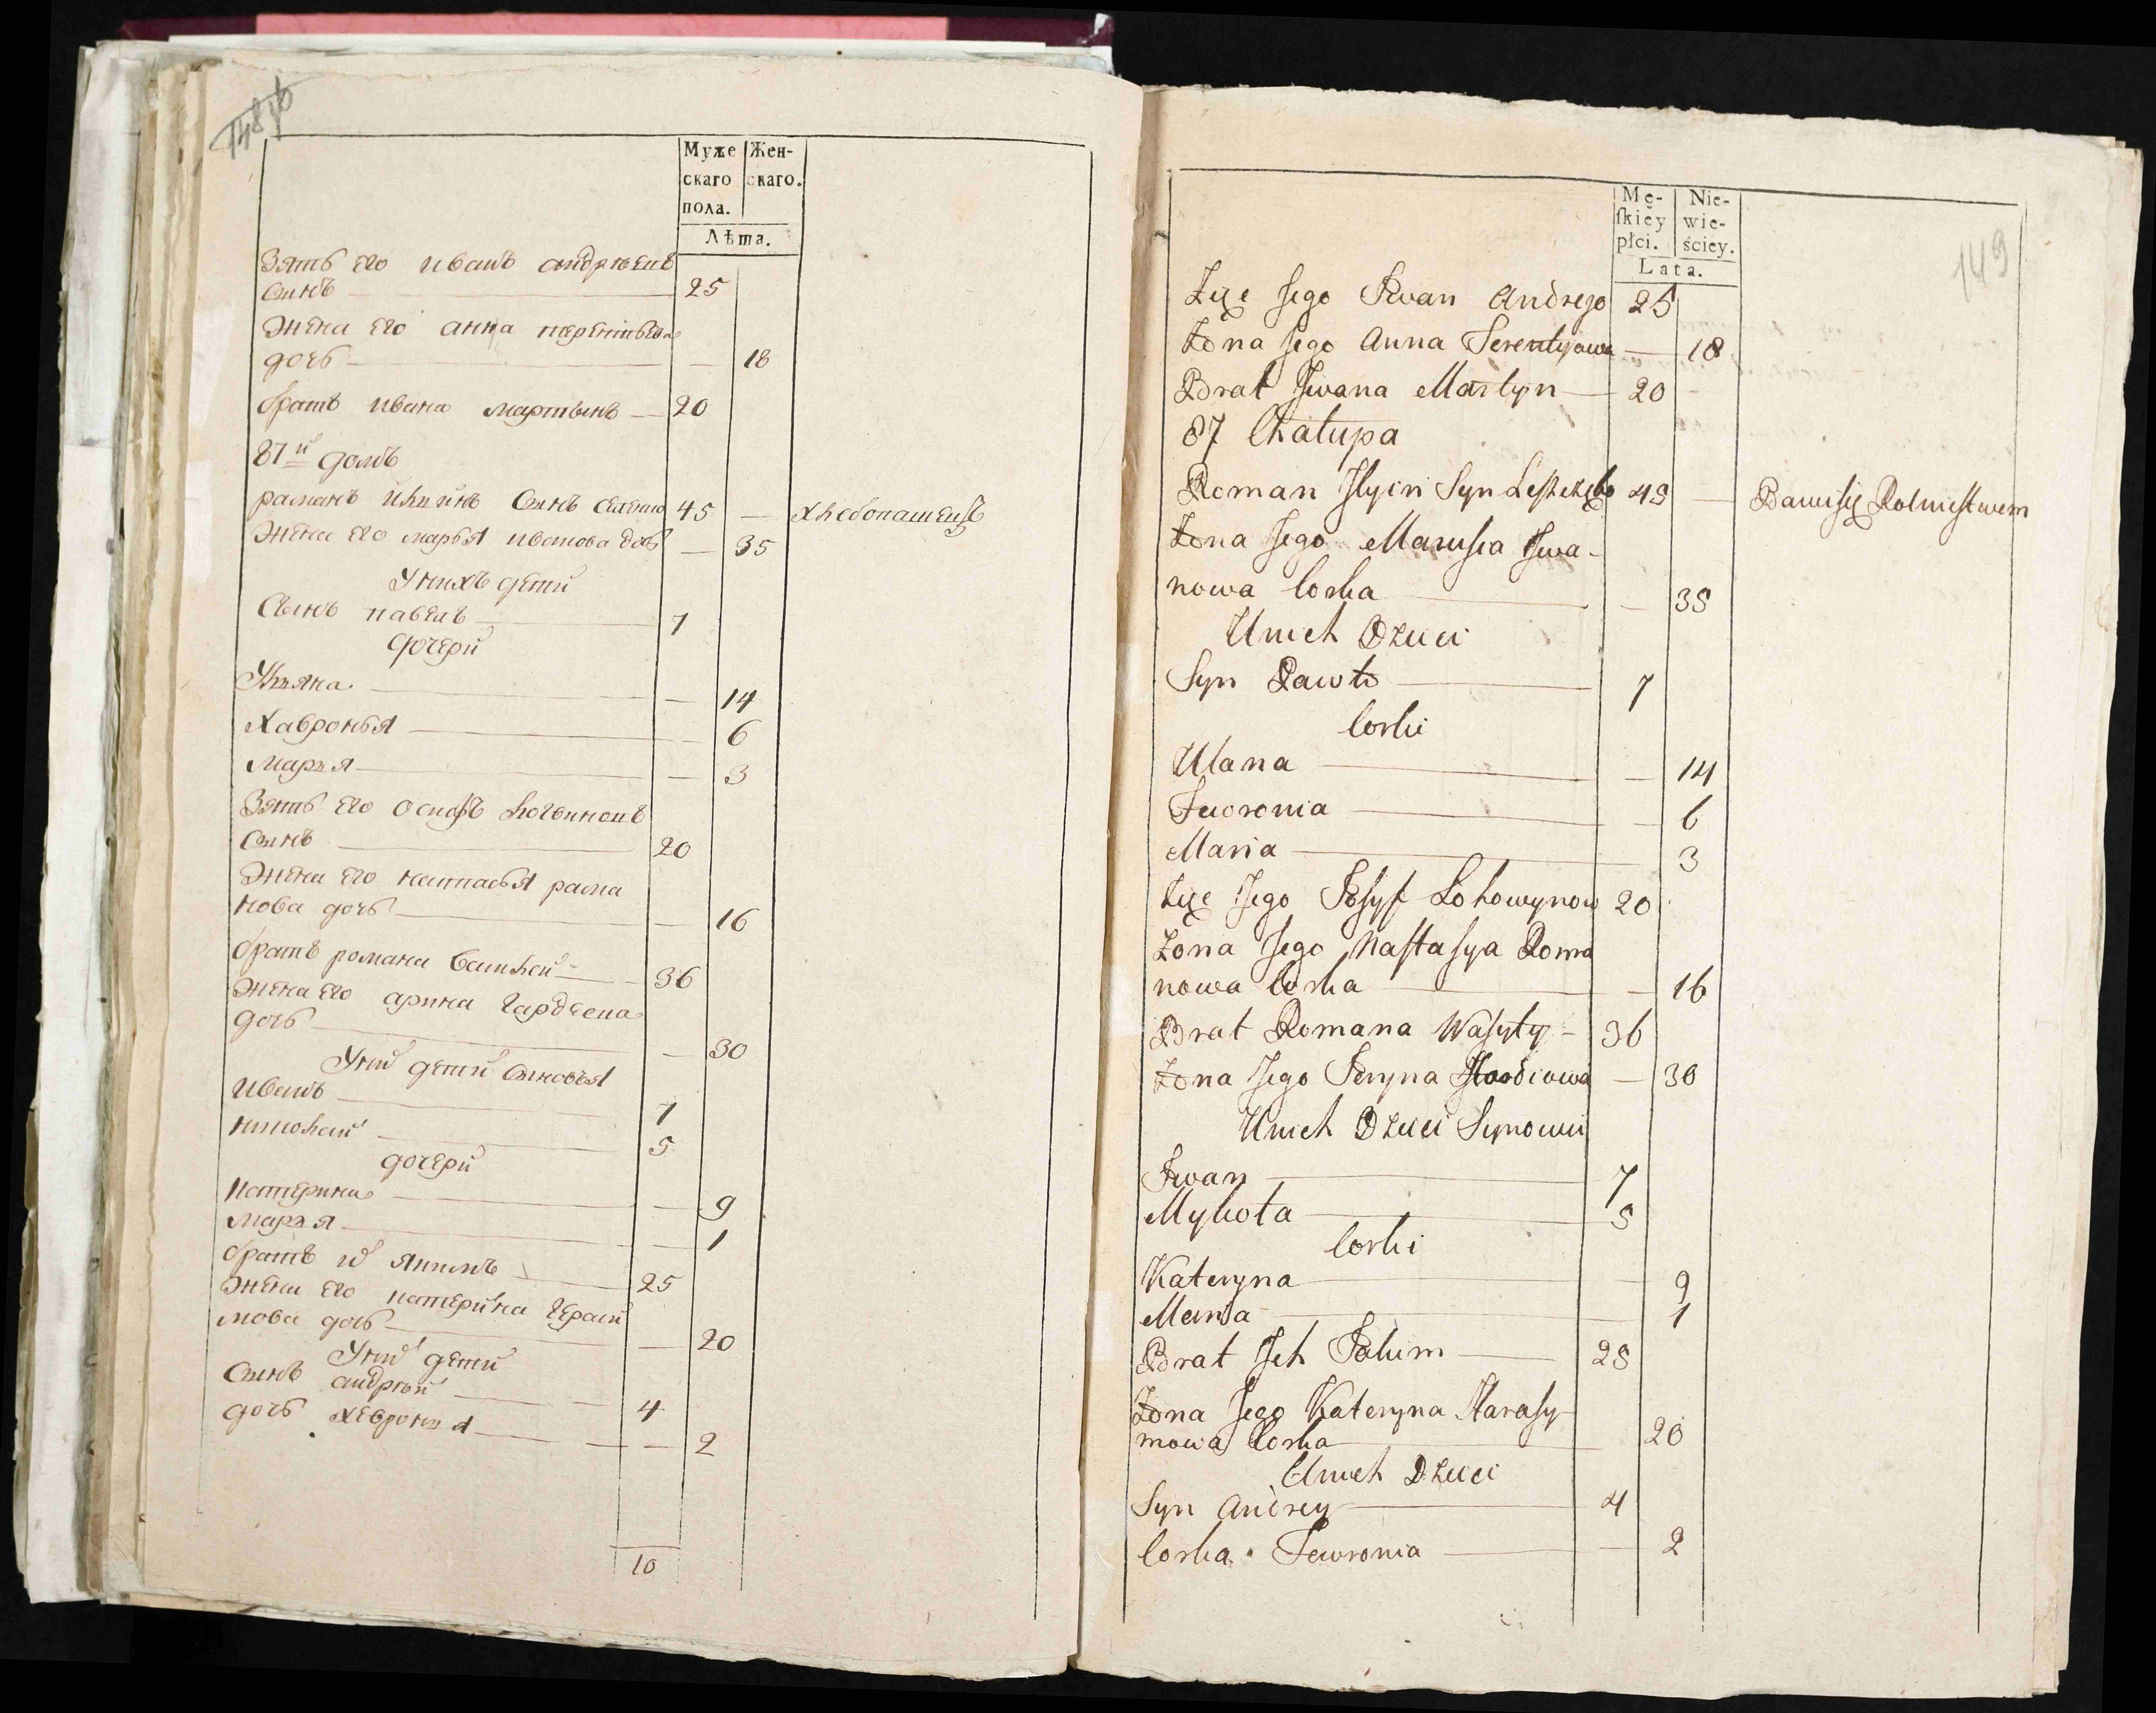 148 об
Муже
скаго
пола.
Жен-
скаго.
Лѣта.
Зять его иванъ андрѣевъ
сынъ 25
Жена его анна терентьева
дочь — 18
братъ ивана мартынъ — 20
87й домъ
раманъ ильинъ сынъ 45 — хлебопашецъ
Жена его марья иванова дочь — 35
У нихъ дети
Сынъ павелъ 7
дочери
Ульяна — 14
Хавронья — 6
Марья — 3
Зять его осипъ логвиновъ
сынъ 20
Жена его настасья рама
нова дочь — 16
братъ романа василей 36
Жена его арина гардеева
дочь — 30
У них дети сыновья
Иванъ 7
николай 5
дочери
Катерина — 9
марья — 1
братъ их якимъ 25
Жена его катерина гераси
мова дочь — 20
У них дети
Сынъ андрей 4
дочь хевронья — 2
10
149
Mę-
ſkiey
płci.
Nie-
wie-
ściey.
Lata.
Zięć Jego Iwan Andrejo 25
Żona Jego Anna Terentyowa — 18
Brat Iwana Martyn — 20
87 Chałupa
Roman Ilyin Syn 45 — Bawi się Rolnictwem
Żona Jego Marusia Iwa-
nowa Corka — 35
U nich Dzieci
Syn Pawło 7
Corki
Ulana — 14
Fewronia — 6
Maria — 3
Zięć Jego Iosyf Lohowynow 20
Żona Jego Nastasya Roma
nowa Corka — 16
Brat Romana Wasyly - 36
Żona Jego Iryna Hordiowa — 30
U nich Dzieci Synowie
Iwan 7
Mykoła 5
Corki
Kateryna — 9
Maria — 1
Brat Ich Iakim 25
Żona Jego Kateryna Harasy-
mowa Corka 20
U nich Dzieci
Syn Andrey 4
Corka Fewronia — 2